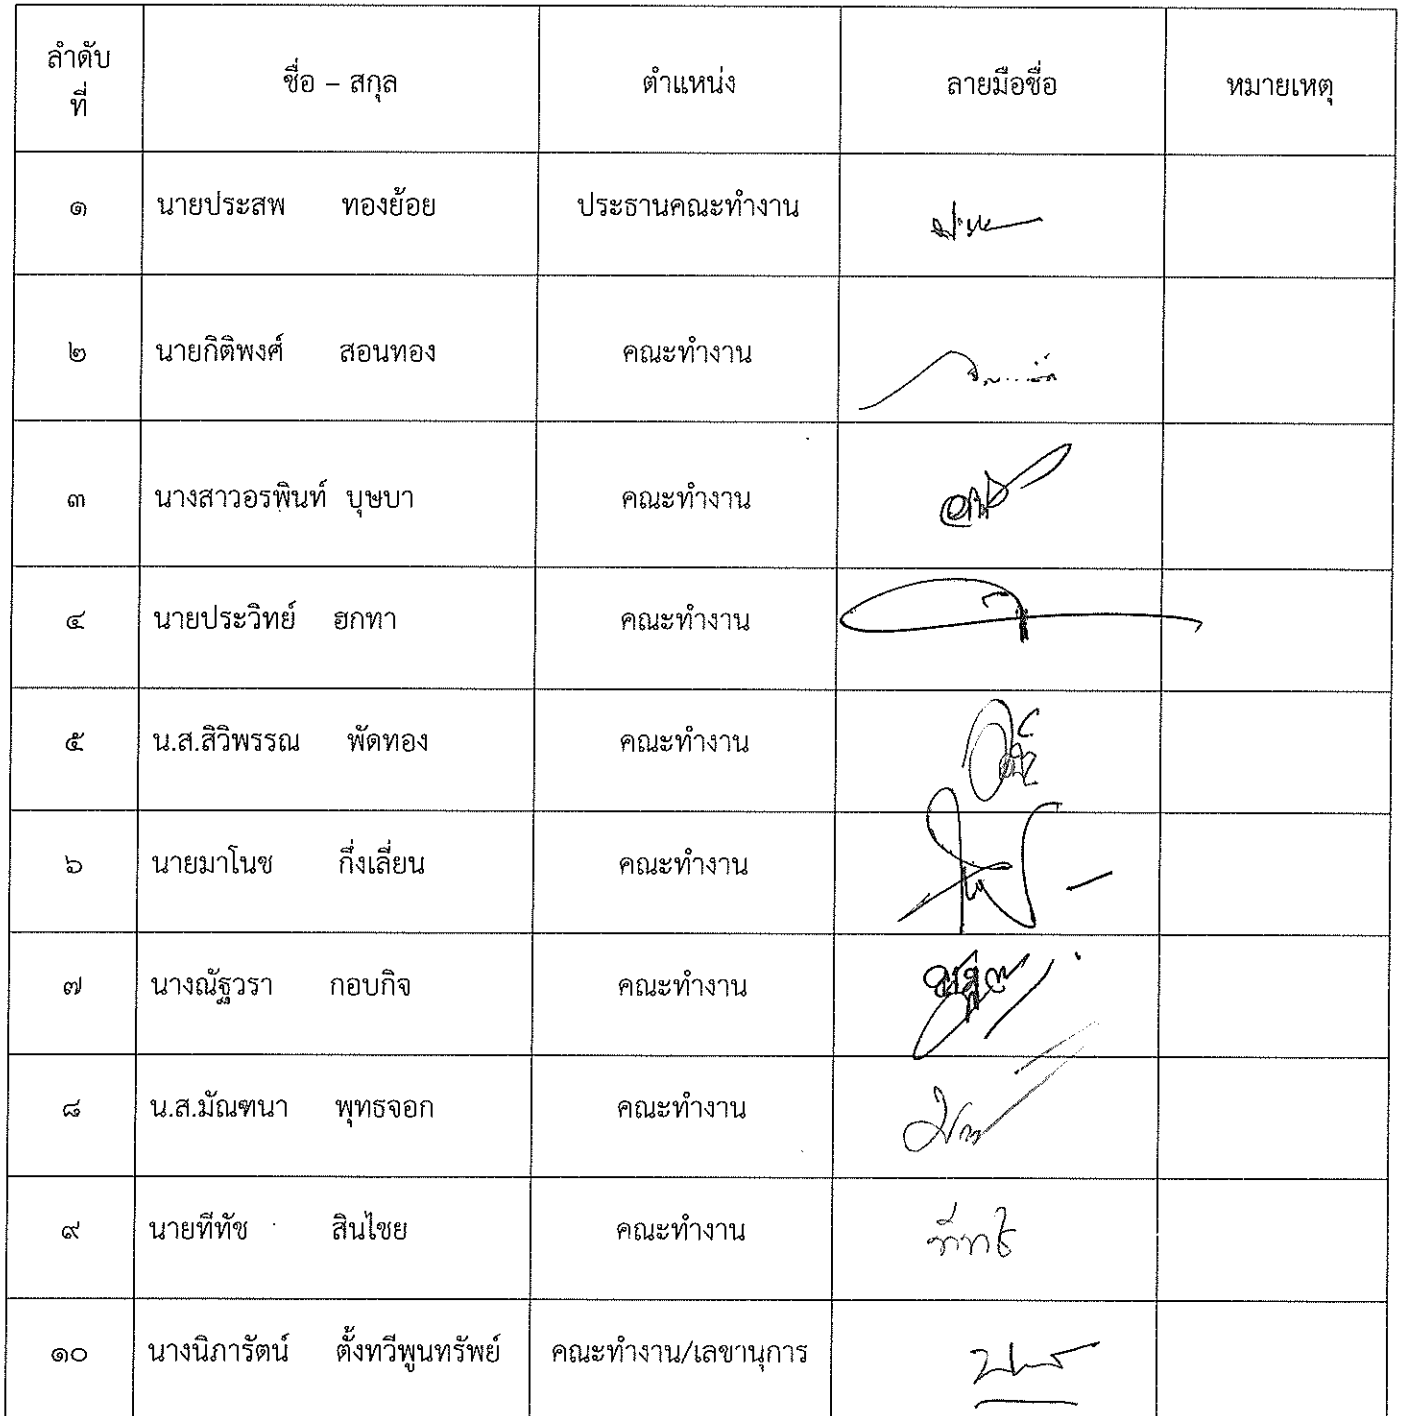 ลำดับ
ที่
ชื่อ – สกุล
ตำแหน่ง
ลายมือชื่อ
หมายเหตุ
๑ นายประสพ ทองย้อย ประธานคณะทำงาน
๒ นายกิติพงศ์ สอนทอง คณะทำงาน
๓ นางสาวอรพินท์ บุษบา คณะทำงาน
๔ นายประวิทย์ ฮกทา คณะทำงาน
๕ น.ส.สิวิพรรณ พัดทอง คณะทำงาน
๖ นายมาโนช กึ่งเลี่ยน คณะทำงาน
๗ นางณัฐวรา กอบกิจ คณะทำงาน
๘ น.ส.มัณฑนา พุทธจอก คณะทำงาน
๙ นายทีทัช สินไชย คณะทำงาน
๑๐ นางนิภารัตน์ ตั้งทวีพูนทรัพย์ คณะทำงาน/เลขานุการ